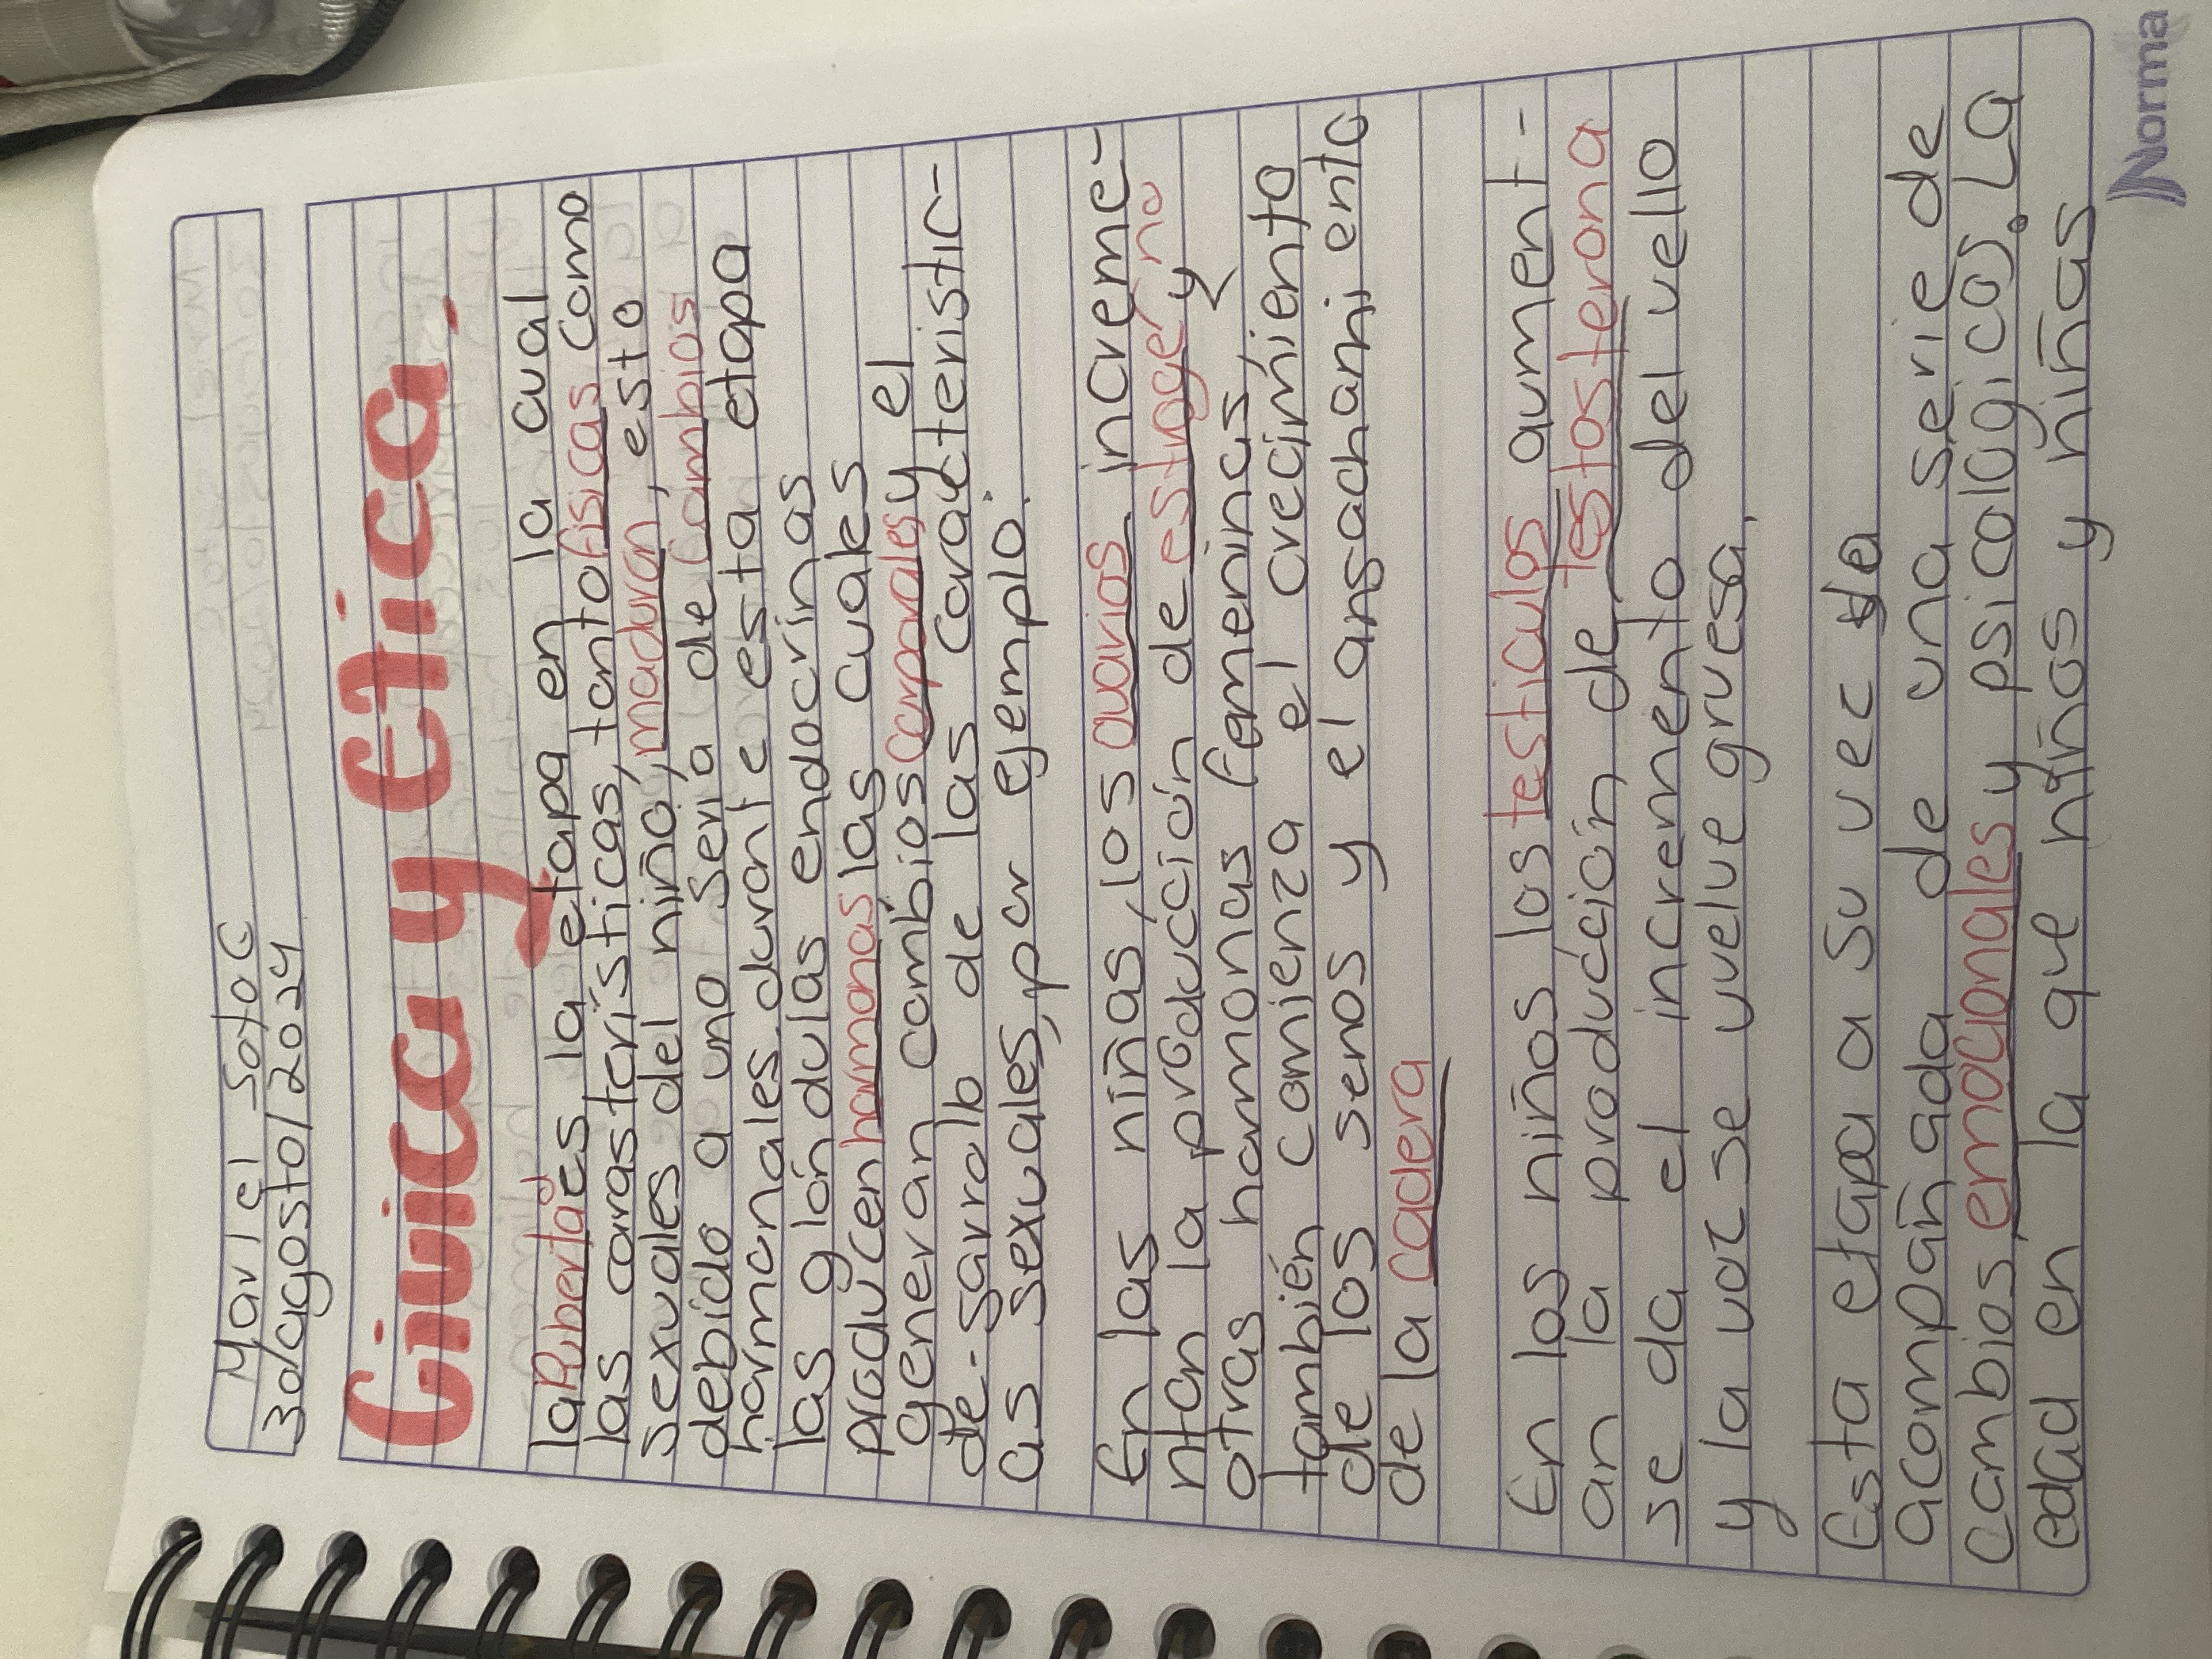 Mariel Soto C
30/agosto/2024
Civica y Etica
la Pubertad es la etapa en la cual
las carasterísticas, tanto fisicas como
sexuales del niño, maduran, esto
debido a una seria de Cambios
hormonales. durante esta etapa
las glándulas endocrinas
producen hormonas las cuales
generan cambios Corporales y el
de-sarrollo de las caracteristic-
as sexuales, por ejemplo.
En las niñas, los ovarios increme-
ntan la producción de estrogeno y
otras hormonas femeninas,
también comienza el crecimiento
de los senos y el ansachamiento
de la cadera
En los niños los testiculos aument-
an la producción de testosterona
se da el incremento del vello
y la voz se vuelve gruesa.
Esta etapa a su vec va
acompañada de una serie de
cambios emocionales y psicológicos. La
edad en la que niños y niñas
Norma